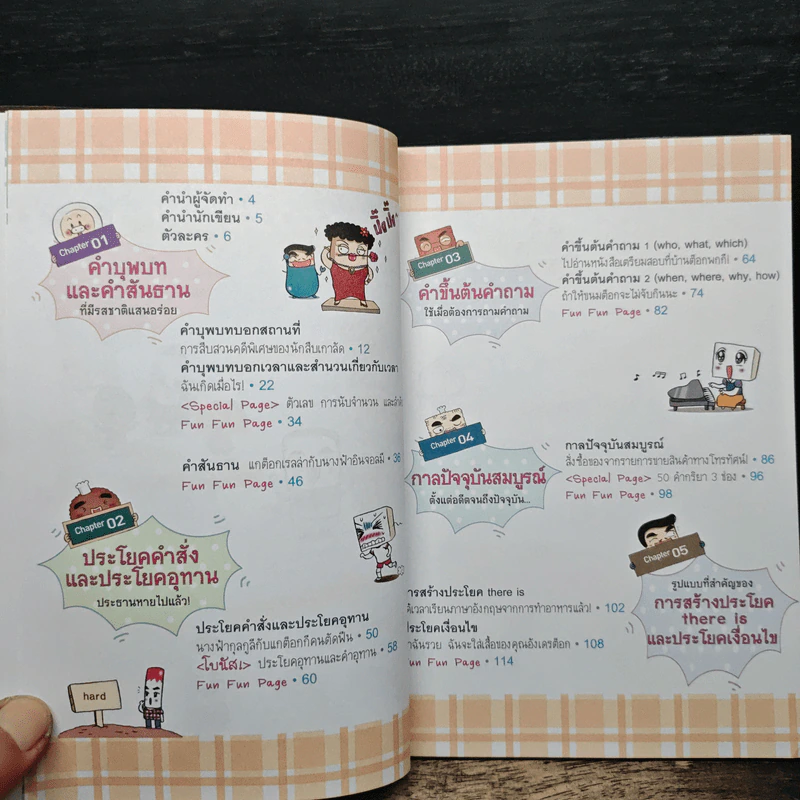 คำนำผู้จัดทำ • 4
คำนำนักเขียน • 5
ตัวละคร • 6
Chapter 01
คำบุพบท
และคำสันธาน
ที่มีรสชาติแสนอร่อย
ปิ๊งปิ๊ง
คำบุพบทบอกสถานที่
การสืบสวนคดีพิเศษของนักสืบเกาลัด • 12
คำบุพบทบอกเวลาและสำนวนเกี่ยวกับเวลา
ฉันเกิดเมื่อไร! • 22
<Special Page> ตัวเลข การนับจำนวน
Fun Fun Page • 34
คำสันธาน แกต๊อกเรลล่ากับนางฟ้าอินจอลมี • 36
Fun Fun Page • 46
Chapter 02
ประโยคคำสั่ง
และประโยคอุทาน
ประธานหายไปแล้ว!
ประโยคคำสั่งและประโยคอุทาน
นางฟ้ากุลกูลีกับแกต๊อกก็คนตัดฟืน • 50
<โบนัส> ประโยคอุทานและคำอุทาน • 58
Fun Fun Page • 60
hard
Chapter 03
คำขึ้นต้นคำถาม
ใช้เมื่อต้องการถามคำถาม
คำขึ้นต้นคำถาม 1 (who, what, which)
ไปอ่านหนังสือเตรียมสอบที่บ้านต๊อกพกกี • 64
คำขึ้นต้นคำถาม 2 (when, where, why, how)
ถ้าให้ขนมต๊อกจะไม่จับกินนะ • 74
Fun Fun Page • 82
Chapter 04
กาลปัจจุบันสมบูรณ์
ตั้งแต่อดีตจนถึงปัจจุบัน...
กาลปัจจุบันสมบูรณ์
สั่งซื้อของจากรายการขายสินค้าทางโทรทัศน์! • 86
<Special Page> 50 คำกริยา 3 ช่อง • 96
Fun Fun Page • 98
Chapter 05
รูปแบบที่สำคัญของ
การสร้างประโยค
there is
และประโยคเงื่อนไข
การสร้างประโยค there is
เวลาเรียนภาษาอังกฤษจากการทำอาหารแล้ว! • 102
ประโยคเงื่อนไข
ถ้าฉันรวย ฉันจะใส่เสื้อของคุณอังเดรต๊อก • 108
Fun Fun Page • 114